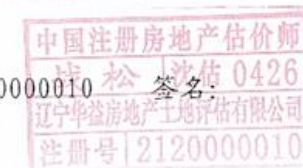 中国注册房地产估价师
松 沈估 0426
0000010 签名:
辽宁华益房地产土地评估有限公司
注册号 2120000010